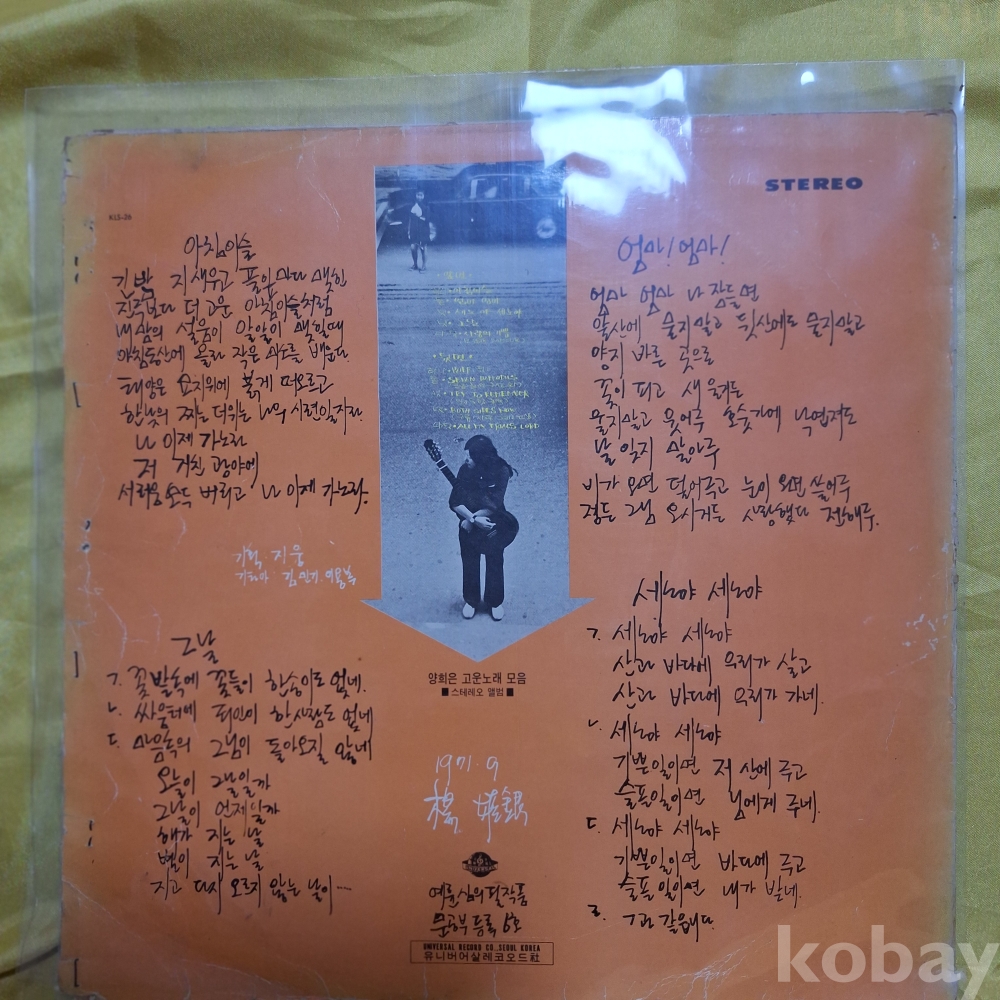 STEREO
KLS-26
아침이슬
긴 밤 지새우고 풀잎마다 맺힌
진주보다 더 고운 아침이슬처럼
내 맘의 설움이 알알이 맺힐때
아침동산에 올라 작은 미소를 배운다
태양은 묘지위에 붉게 떠오르고
한낮의 찌는 더위는 나의 시련일지라
나 이제 가노라
저 거친 광야에
서러움 모두 버리고 나 이제 가노라.
기획. 지웅
기타아 김민기 이용복
그날
ㄱ. 꽃밭속에 꽃들이 한송이도 없네.
ㄴ. 싸움터에 죄인이 한사람도 없네
ㄷ. 마음속의 그님이 돌아오질 않네
오늘이 그날일까
그날이 언제일까
해가 지는 날
별이 지는 날
지고 다시 오르지 않는 날이....
SEVEN DAFFODILS
TRY TO REMEMBER
양희은 고운노래 모음
■ 스테레오 앨범 ■
1971. 9
楊 姬銀
예륜심의필작품
문공부 등록 6호
UNIVERSAL RECORD CO., SEOUL KOREA
유니버어살레코오드社
엄마! 엄마!
엄마 엄마 나 잠들면
앞산에 묻지말고 뒷산에도 묻지말고
양지 바른 곳으로
꽃이 피고 새 울려든
울지말고 웃어주 호숫가에 낙엽져도
날 잊지 말아주
비가 오면 덮어주고 눈이 오면 쓸어주
정든 그님 오시거든 사랑했다 전해주.
세노야 세노야
ㄱ. 세노야 세노야
산과 바다에 우리가 살고
산과 바다에 우리가 가네.
ㄴ. 세노야 세노야
기쁜일이면 저 산에 주고
슬픈일이면 님에게 주네.
ㄷ. 세노야 세노야
기쁜일이면 바다에 주고
슬픈일이면 내가 받네.
ㄹ. ㄱ과 같읍니다.
kobay